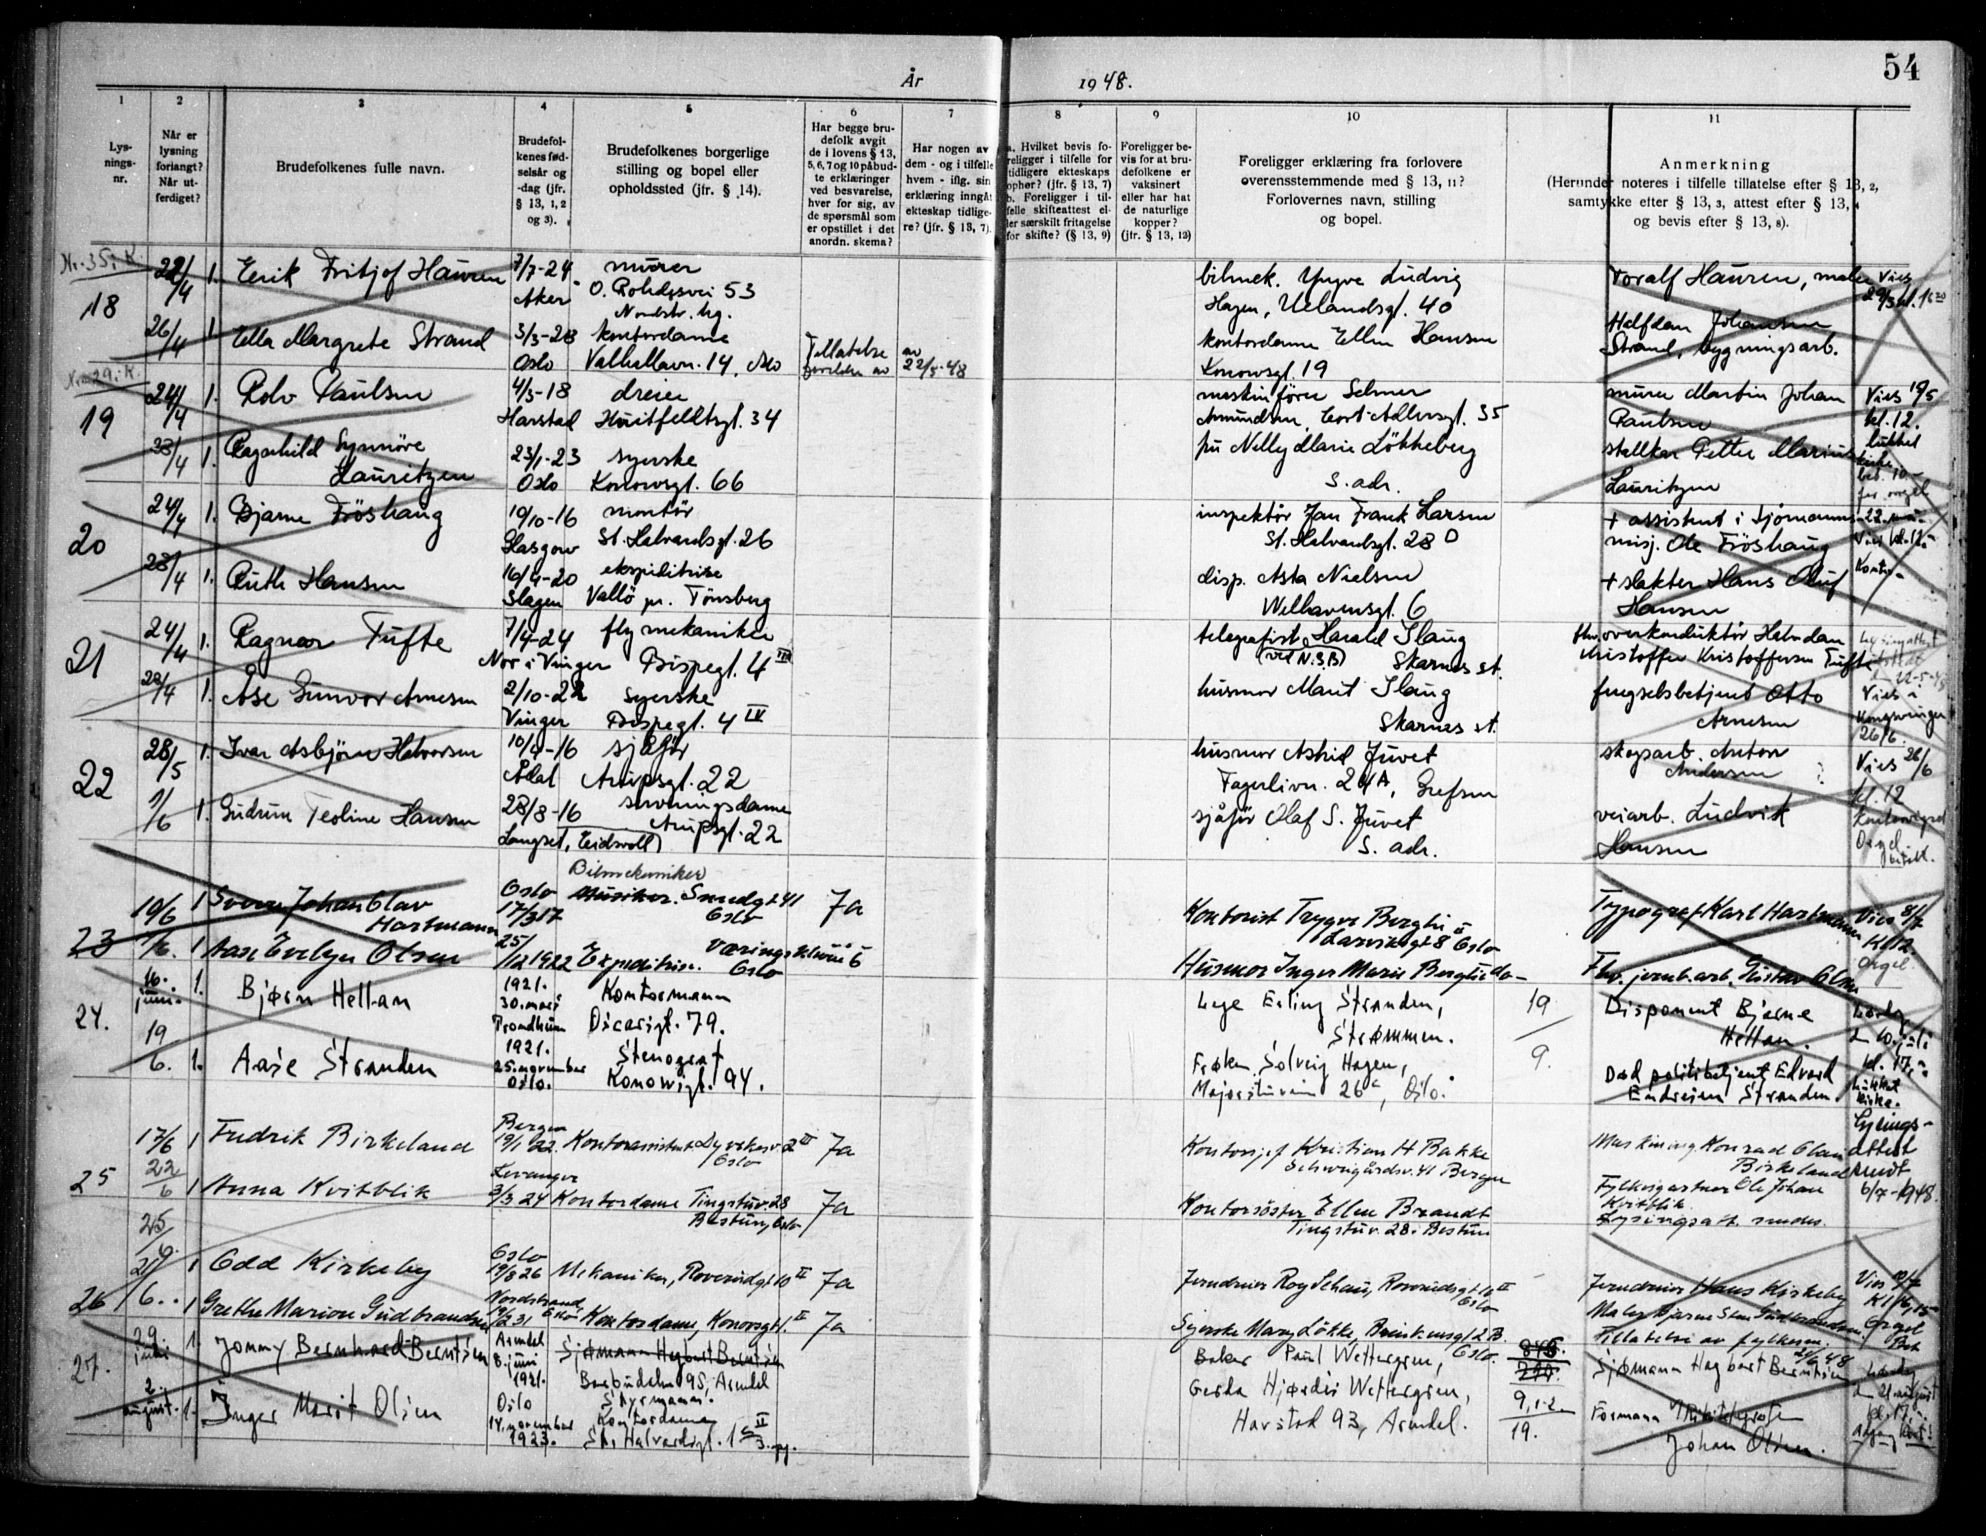 År 1948.
54
1 2 3 4 5 6 7 8 9 10 11
Lys-
nings-
nr.
Når er
lysning
forlangt?
Når ut-
ferdiget?
Brudefolkenes fulle navn.
Brudefol-
kenes fød-
selsår og
-dag (jfr.
§ 13, 1, 2
og 3).
Brudefolkenes borgerlige
stilling og bopel eller
opholdssted (jfr. § 14).
Har begge bru-
defolk avgit
de i lovens § 13,
5, 6, 7 og 10 påbud-
te erklæringer
ved besvarelse,
hver for sig, av
de spørsmål som
er opstillet i det
anordn. skema?
Har nogen av
dem - og i tilfelle
hvem - iflg. sin
erklæring inngåt
ekteskap tidlige-
re? (jfr. § 13, 7).
a. Hvilket bevis fo-
religger i tilfelle for
tidligere ekteskaps
ophør? (jfr. § 13, 7)
b. Foreligger i til-
felle skifteattest el-
ler særskilt fritagelse
for skifte? (§ 13, 9)
Foreligger be-
vis for at bru-
defolkene er
vaksinert
eller har hat
de naturlige
kopper?
(jfr. § 13, 12)
Foreligger erklæring fra forlovere
overensstemmende med § 13, 11?
Forlovernes navn, stilling
og bopel.
Anmerkning
(Herunder noteres i tilfelle tillatelse efter § 13, 2,
samtykke efter § 13, 3, attest efter § 13, 4
og bevis efter § 13, 8).
Nr. 35 i K.
18
22/4 1. Eerik Fritjof Hauren 7/7-24 murer bilmek. Yngve Ludvig Toralf Hauren, maler Vies
Aker O. Rohdesvei 53 Hagen, Uelandsgt. 40
Nordstr. hg.
26/4 1. Ella Margrete Strand 3/3-28 kontordame kontordame Ellen Hansen Halfdan Johansen
Oslo Valhallavn. 14, Oslo Tillatelse av 22/5-48 Konowsgt. 19 Strand, bygningsarb.
Nr. 29 i K.
19
24/4 1. Rolv Paulsen 4/3-18 dreier maskinfører Selmer murer Martin Johan Vies 19/5
Harstad Huitfeldtsgt. 34 Amundsen, Cort Adlersgt. 35 Paulsen kl. 12.
23/4 1. Ragnhild Synnöve 23/1-23 syerske frk Nelly Marie Lökkeberg lukket
Lauritzen Oslo Konowsgt. 66 S. adr. Lauritzen
20
24/4 1. Bjarne Fröshaug 19/10-16 montör inspektör Jan Frank Larsen + assistent i Sjømanns-
Glasgow St. Halvardsgt. 26 St. Halvardsgt. 28 D misj. Ole Fröshaug
23/4 1. Ruth Hansen 16/4-20 ekspeditrise disp. Asta Nielsen + slakter Hans Oluf
Slagen Vallö pr. Tönsberg Welhavensgt. 6 Hansen
21
24/4 1. Ragnar Tufte 7/4-24 flymekaniker telegrafist Harald Slaug fhv. overkonduktör Halvdan
Nor i Vinger Bispegt. 4 III (ved N.S.B) Skarnes st. Kristoffer Kristoffersen Tufte
22/4 1. Åse Gunvor Arnesen 2/10-22 syerske husmor Marit Slaug fengselsbetjent Otto Vies i
Vinger Bispegt. 4 IV Skarnes st. Arnesen Kongsvinger
26/6.
22
28/5 1. Ivar Asbjörn Halvorsen 10/4-16 sjåför husmor Astrid Juvet skogsarb. Anton Vies 26/6
Ådal Arupsgt. 22 Fagerlivn. 24A, Grefsen Andersen kl. 12
1/6 1. Gudrun Teoline Hansen 28/8-16 serveringsdame sjåför Olaf S. Juvet veiarb. Ludvik
Langset, (Eidsvoll) Arupsgt. 22 S. adr. Hansen Orgel
Bilmekaniker
23
10/6 1 Sverre Johan Olav Oslo Musiker. Smedgt 41 7a Kontorist Trygve Berglie Typograf Karl Hartmann Vies
Hartmann 17/3 17 Oslo Larviksgt 8 II Oslo
1 Aase Evelyn Olsen 25/12 1922 Expeditrise. Oslo Husmor Inger Marie Berglie do- Fhv. jernb.arb. Gustav Olsen Orgel
24.
16. juni. 1. Bjørn Hellan 1921. 30. mars Kontormann Lege Erling Stranden, 19 Disponent Bjarne
Trondheim Oscarsgt. 79. Strømmen. Hellan. 10. juli
19/6. 1. Aase Stranden 1921. Stenograf Frøken Solveig Hagen, 9. Død politibetjent Edvard kl. 17,
25. november Oslo. Konowsgt. 94. Majorstuvein 26 c, Oslo. Endresen Stranden. lukket kirke.
25
17/6 1 Fredrik Birkeland Bergen 19/1 22. Kontorassistent Dyvekesv. 2 III Oslo 7a Kontorsjef Kristian H Bakke Maskining. Konrad Olan Lysings-
Schweigårdsv. 41 Bergen Birkeland attest sendt
22/6 1 Anna Kvitblik Levanger 3/3 24 Kontordame Tingstuv. 28 7a Kontorsöster Ellen Brandt Fylkesgartner Ole Johan 6/7-1948.
Bestum, Oslo Tingstuv. 28. Bestum Kvitblik.
Lysingsatt. sendes.
26
25/6. 1 Odd Kirkeby Oslo 19/8 26 Mekaniker, Roversudgt 10 II 7a Jerndreier Roy Schau, Jerndreier Hans Kirkeby Vies 10/7
1 Grethe Marion Gudbrandsen Nordstrand Kontordame, Konowsgt 1. II 7a Syerske Mary Løkke, Oslo. Orgel
Tillatelse av fylkesm. 24/6 48
27.
29. juni 1. Jonny Bernhard Berntsen Arendal 8. juni 1921. Sjømann Hagbart Berntsen Baker Paul Wettergren, Sjømann Hagbart Berntsen Lørdag
Barbudalen 95, Arendal Gerda Hjørdis Wettergren, d. 21 august
Styrmann.
2. august. 1. Inger Marit Olsen Oslo 14. november 1923. Kontordame Havstad 93, Arendal. 19. Formann
St. Halvardsgt. 1 Johan Olsen.